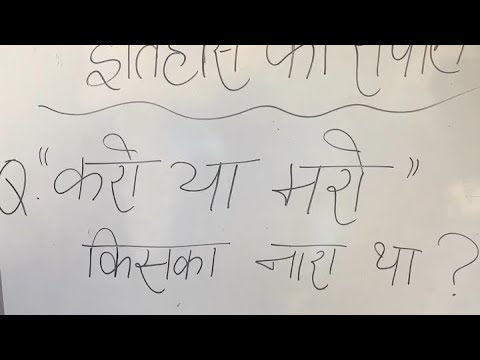 इतिहास का सवाल
Q. "करो या मरो"
किसका नारा था ?